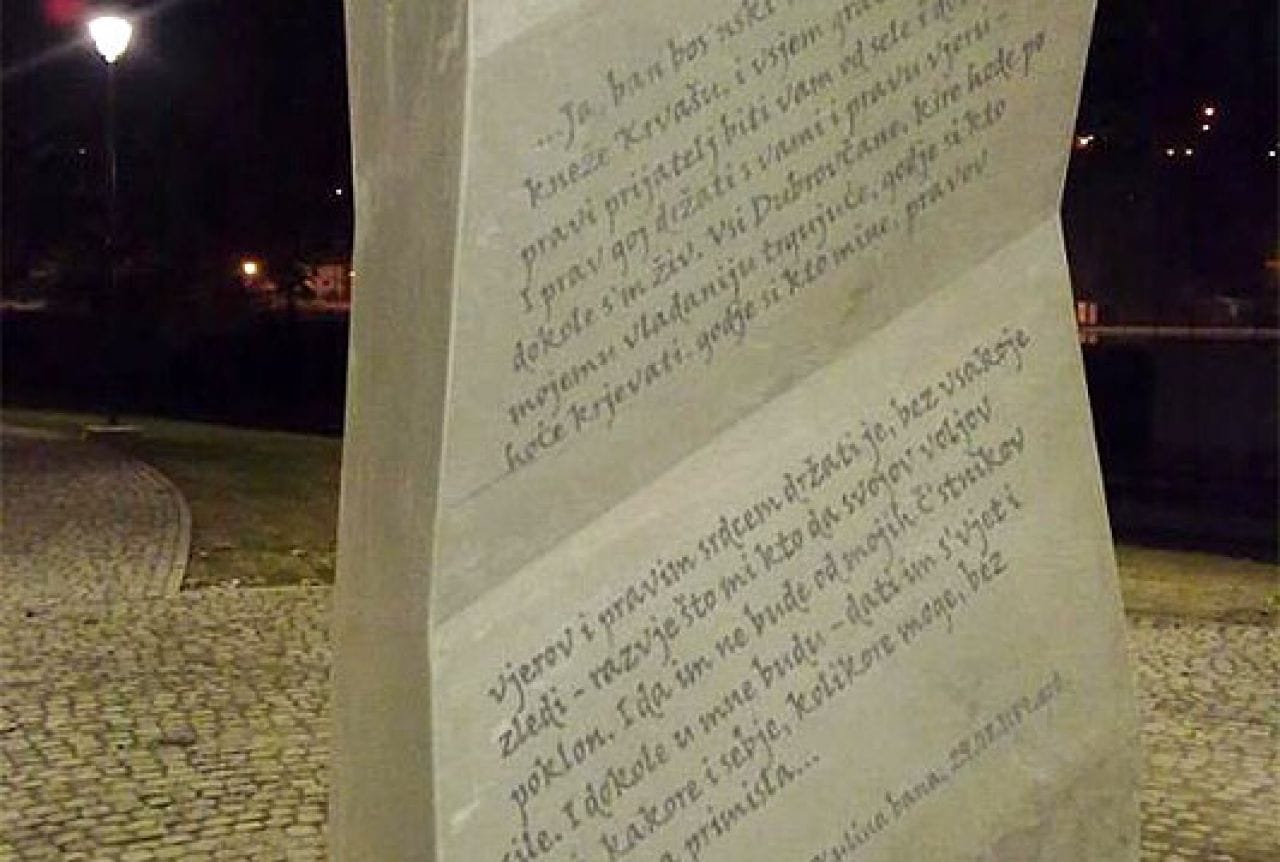 ...Ja, ban bosanski
kneže Krvašu, i vsjem gra
pravi prijatelj biti vam od sele i do
I prav goj držati s vami i pravu vjeru -
dokole s'm živ. Vsi Dubrovčane, kire hode po
mojemu vladaniju trgujuće, godje si kto
hoće krjevati, godje si kto mine, pravov
vjerov i pravim srdcem držati je, bez vsakoje
zledi - razvje što mi kto da svojov voljov
poklon. I da im ne bude od mojih č'stnikov
sile. I dokole u mne budu - dati im s'vjet i
kakore i sebje, kolikore moge, bez
primisla...
Kulina bana, 29.